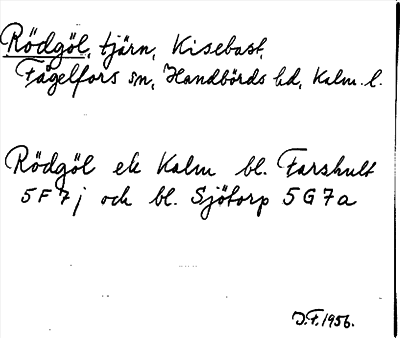 Rödgöl, tjärn, Kisebast,
Fågelfors sn, Handbörds hd, Kalm. l.
Rödgöl ek Kalm bl. Farshult
5F7j och bl. Sjötorp 5G7a
J.F. 1956.